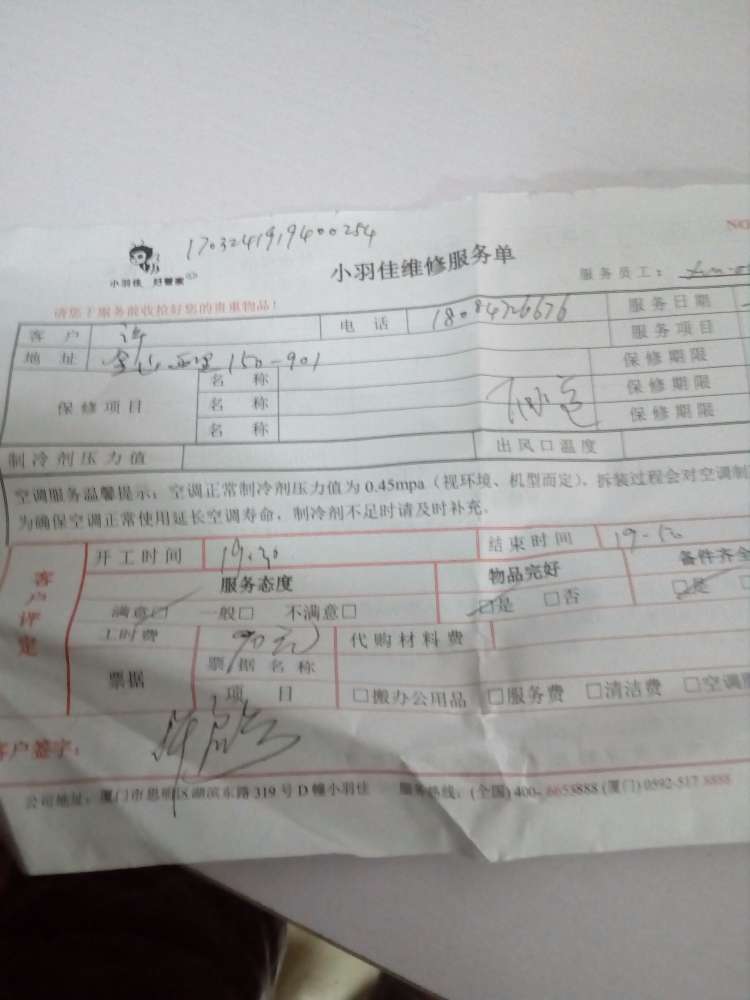 NO
17032419194000254
小羽佳 好管家
小羽佳维修服务单
服务员工：
请您于服务前收捡好您的贵重物品！
客户 许 电话 18084726676 服务日期
服务项目
地址 150-901 保修期限
保修项目 名称 保修期限
名称 保修期限
名称
制冷剂压力值 出风口温度
空调服务温馨提示：空调正常制冷剂压力值为0.45mpa（视环境、机型而定）、拆装过程会对空调制
为确保空调正常使用延长空调寿命，制冷剂不足时请及时补充。
客户评定
开工时间 19.30 结束时间
服务态度 物品完好 备件齐全
满意□ 一般□ 不满意□ □是 □否 □是
工时费 90元 代购材料费
票据 票据名称
项目 □搬办公用品 □服务费 □清洁费 □空调
客户签字：
公司地址：厦门市思明区湖滨东路319号D幢小羽佳 服务热线：(全国)400-6653888 (厦门)0592-517 8888